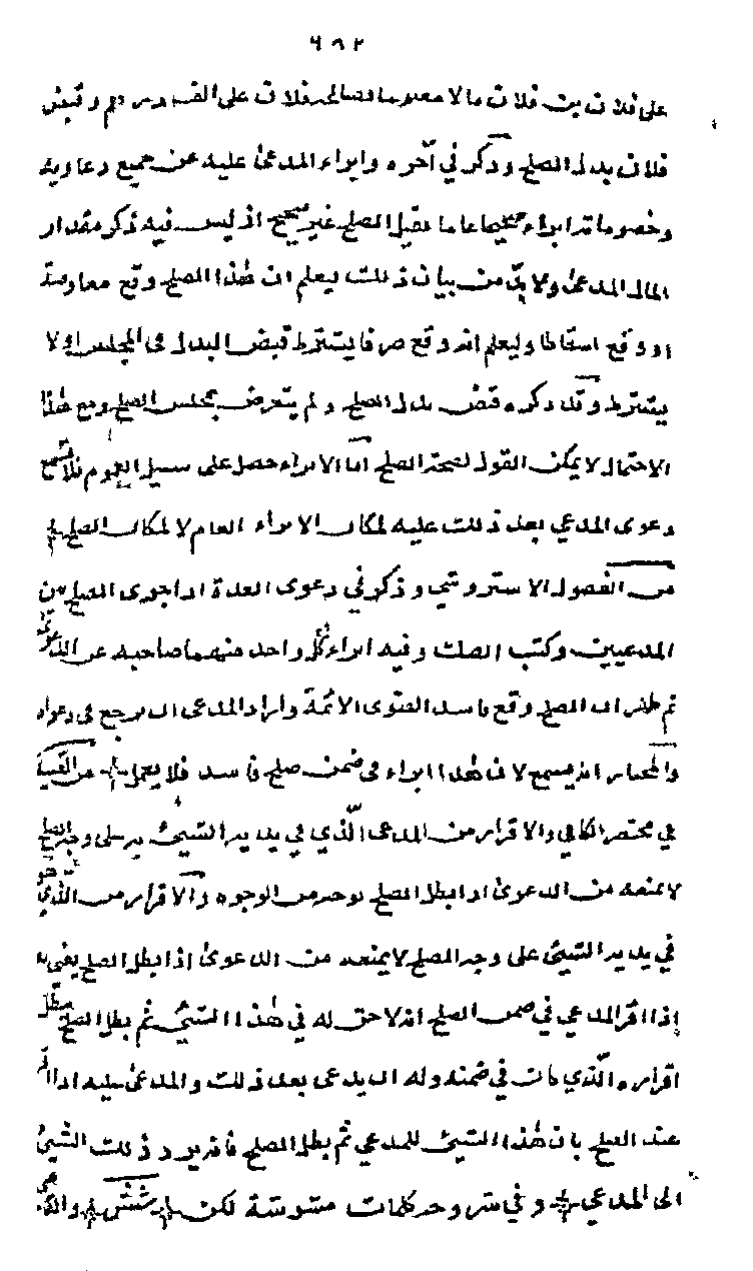 ٦٨٢
على فلان بن فلان مالا معلوما فصالحه فلان على الف درهم وقبض
فلان بدل الصلح وذكر في آخره وابراء المدعى عليه عن جميع دعاويه
وخصوماته ابراء صحيحا عاما فقيل الصلح غير صحيح اذ ليس فيه ذكر مقدار
المال المدعى ولا بدّ من بيان ذلك ليعلم ان هذا الصلح وقع معاوضة
او وقع اسقاطا وليعلم انه وقع صرفا يشترط قبض البدل في المجلس او لا
يشترط وقد ذكره قبض بدل الصلح ولم يتعرض بمجلس الصلح ومع هذا
الاحتمال لا يمكن القول لصحة الصلح اما الابراء حصل على سبيل العموم فلا تسمع
دعوى المدعي بعد ذلك عليه لمكان الابراء العام لا لمكان الصلح
من الفصول الاستروشني وذكر في دعوى العدة اذا جرى الصلح بين
المدعيين وكتب الصك وفيه ابراء كل واحد منهما صاحبه عن الدعوى
ثم ظهر ان الصلح وقع فاسد الفتوى الائمة واراد المدعى ان يرجع في دعواه
والمختار انه يسمع لان هذا ابراء في ضمن صلح فاسد فلا يعمل من القنية
في مختصر الكافي والاقرار من المدعى الّذي في يديه الشيئ على وجه الصلح
لا يمنعه من الدعوى اذا بطل الصلح بوجه من الوجوه والاقرار من الّذي هو
في يديه الشيئ على وجه الصلح لا يمنعه من الدعوى اذا بطل الصلح يعني به
اذا اقر المدعي في ضمن الصلح انه لا حق له في هذا الشيئ ثم بطل الصلح بطل
اقراره الّذي كان في ضمنه وله ان يدعى بعد ذلك والمدعى عليه اذا اقر
عند الصلح بان هذا الشيئ للمدعي ثم بطل الصلح فانه يرد ذلك الشيئ
الى المدعي وفي شروحه كلمات مشوشة لكن